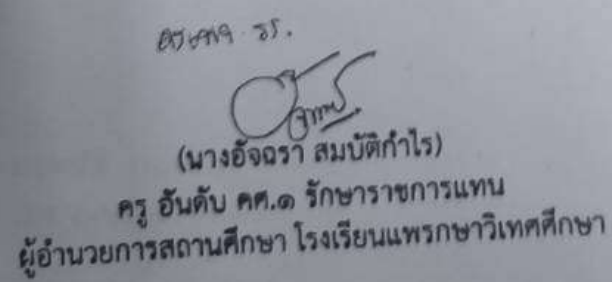 (นางอัจฉรา สมบัติกำไร)
ครู อันดับ คศ.๑ รักษาราชการแทน
ผู้อำนวยการสถานศึกษา โรงเรียนแพรกษาวิเทศศึกษา